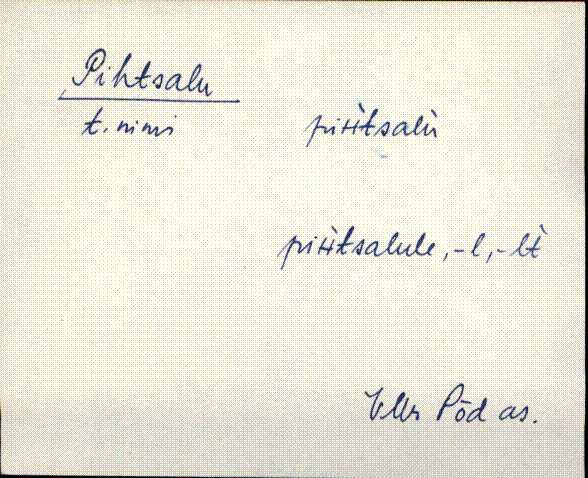 Pihtsalu
t. nimi piìtsalù
piìtsalule, -l, -lt̀
Vllr Põd as.